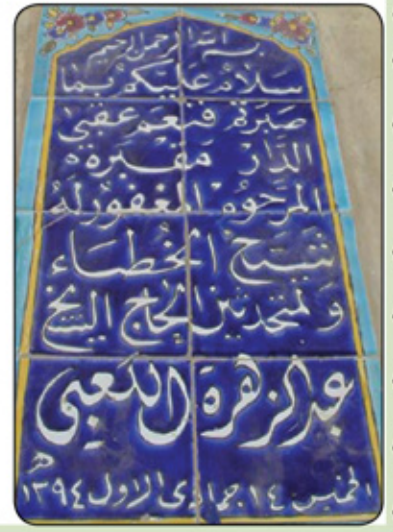 بسم الله الرحمن الرحيم
سلام عليكم بما
صبرتم فنعم عقبى
الدار مقبرة
المرحوم المغفور له
شيخ الخطباء
والمتحدثين الحاج الشيخ
عبد الزهرة الكعبي
الخميس ١٤ جمادى الاول ١٣٩٤ هـ